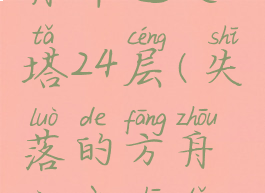 tǎ céng shī
塔24层(失
luò de fāng zhōu
落的方舟